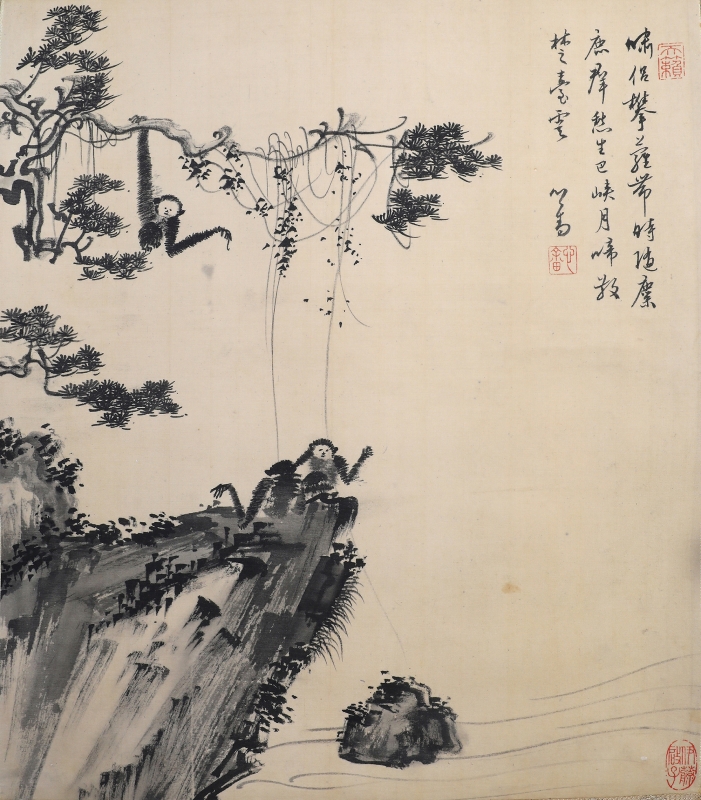 嘯侶攀蘿帶時隨麋
鹿群愁生巴峽月啼散
楚臺雲 心畬